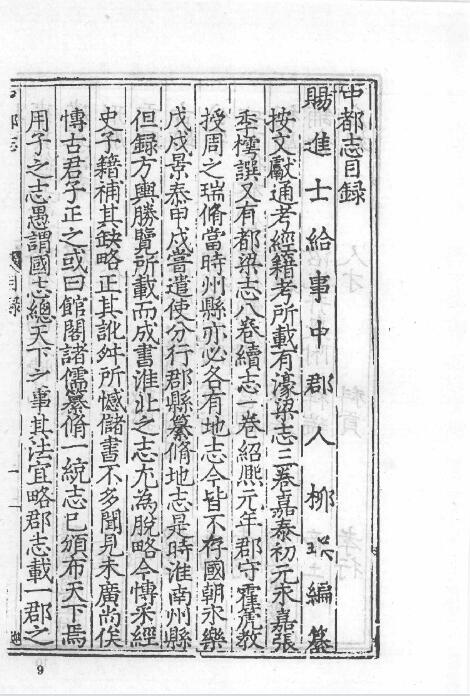 中都志目録
賜進士給事中郡人柳瑛編纂
按文獻通考經籍考所載有濠梁志三卷嘉泰初元永嘉張
季樗譔又有都梁志八卷續志一卷紹熙元年郡守霍篪教
授周之瑞脩當時州縣亦必各有地志今皆不存國朝永樂
戊戌景泰甲戌嘗遣使分行郡縣纂脩地志是時淮南州縣
但録方輿勝覽所載而成書淮北之志尤為脫略今博采經
史子籍補其缺略正其訛舛所憾儲書不多聞見未廣尚俟
博古君子正之或曰館閣諸儒纂脩一統志已頒布天下焉
用子之志愚謂國志總天下之事其法宜略郡志載一郡之
中都志 目録 一
9